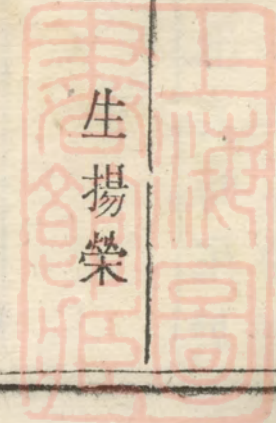 生揚榮
上海圖
書館藏